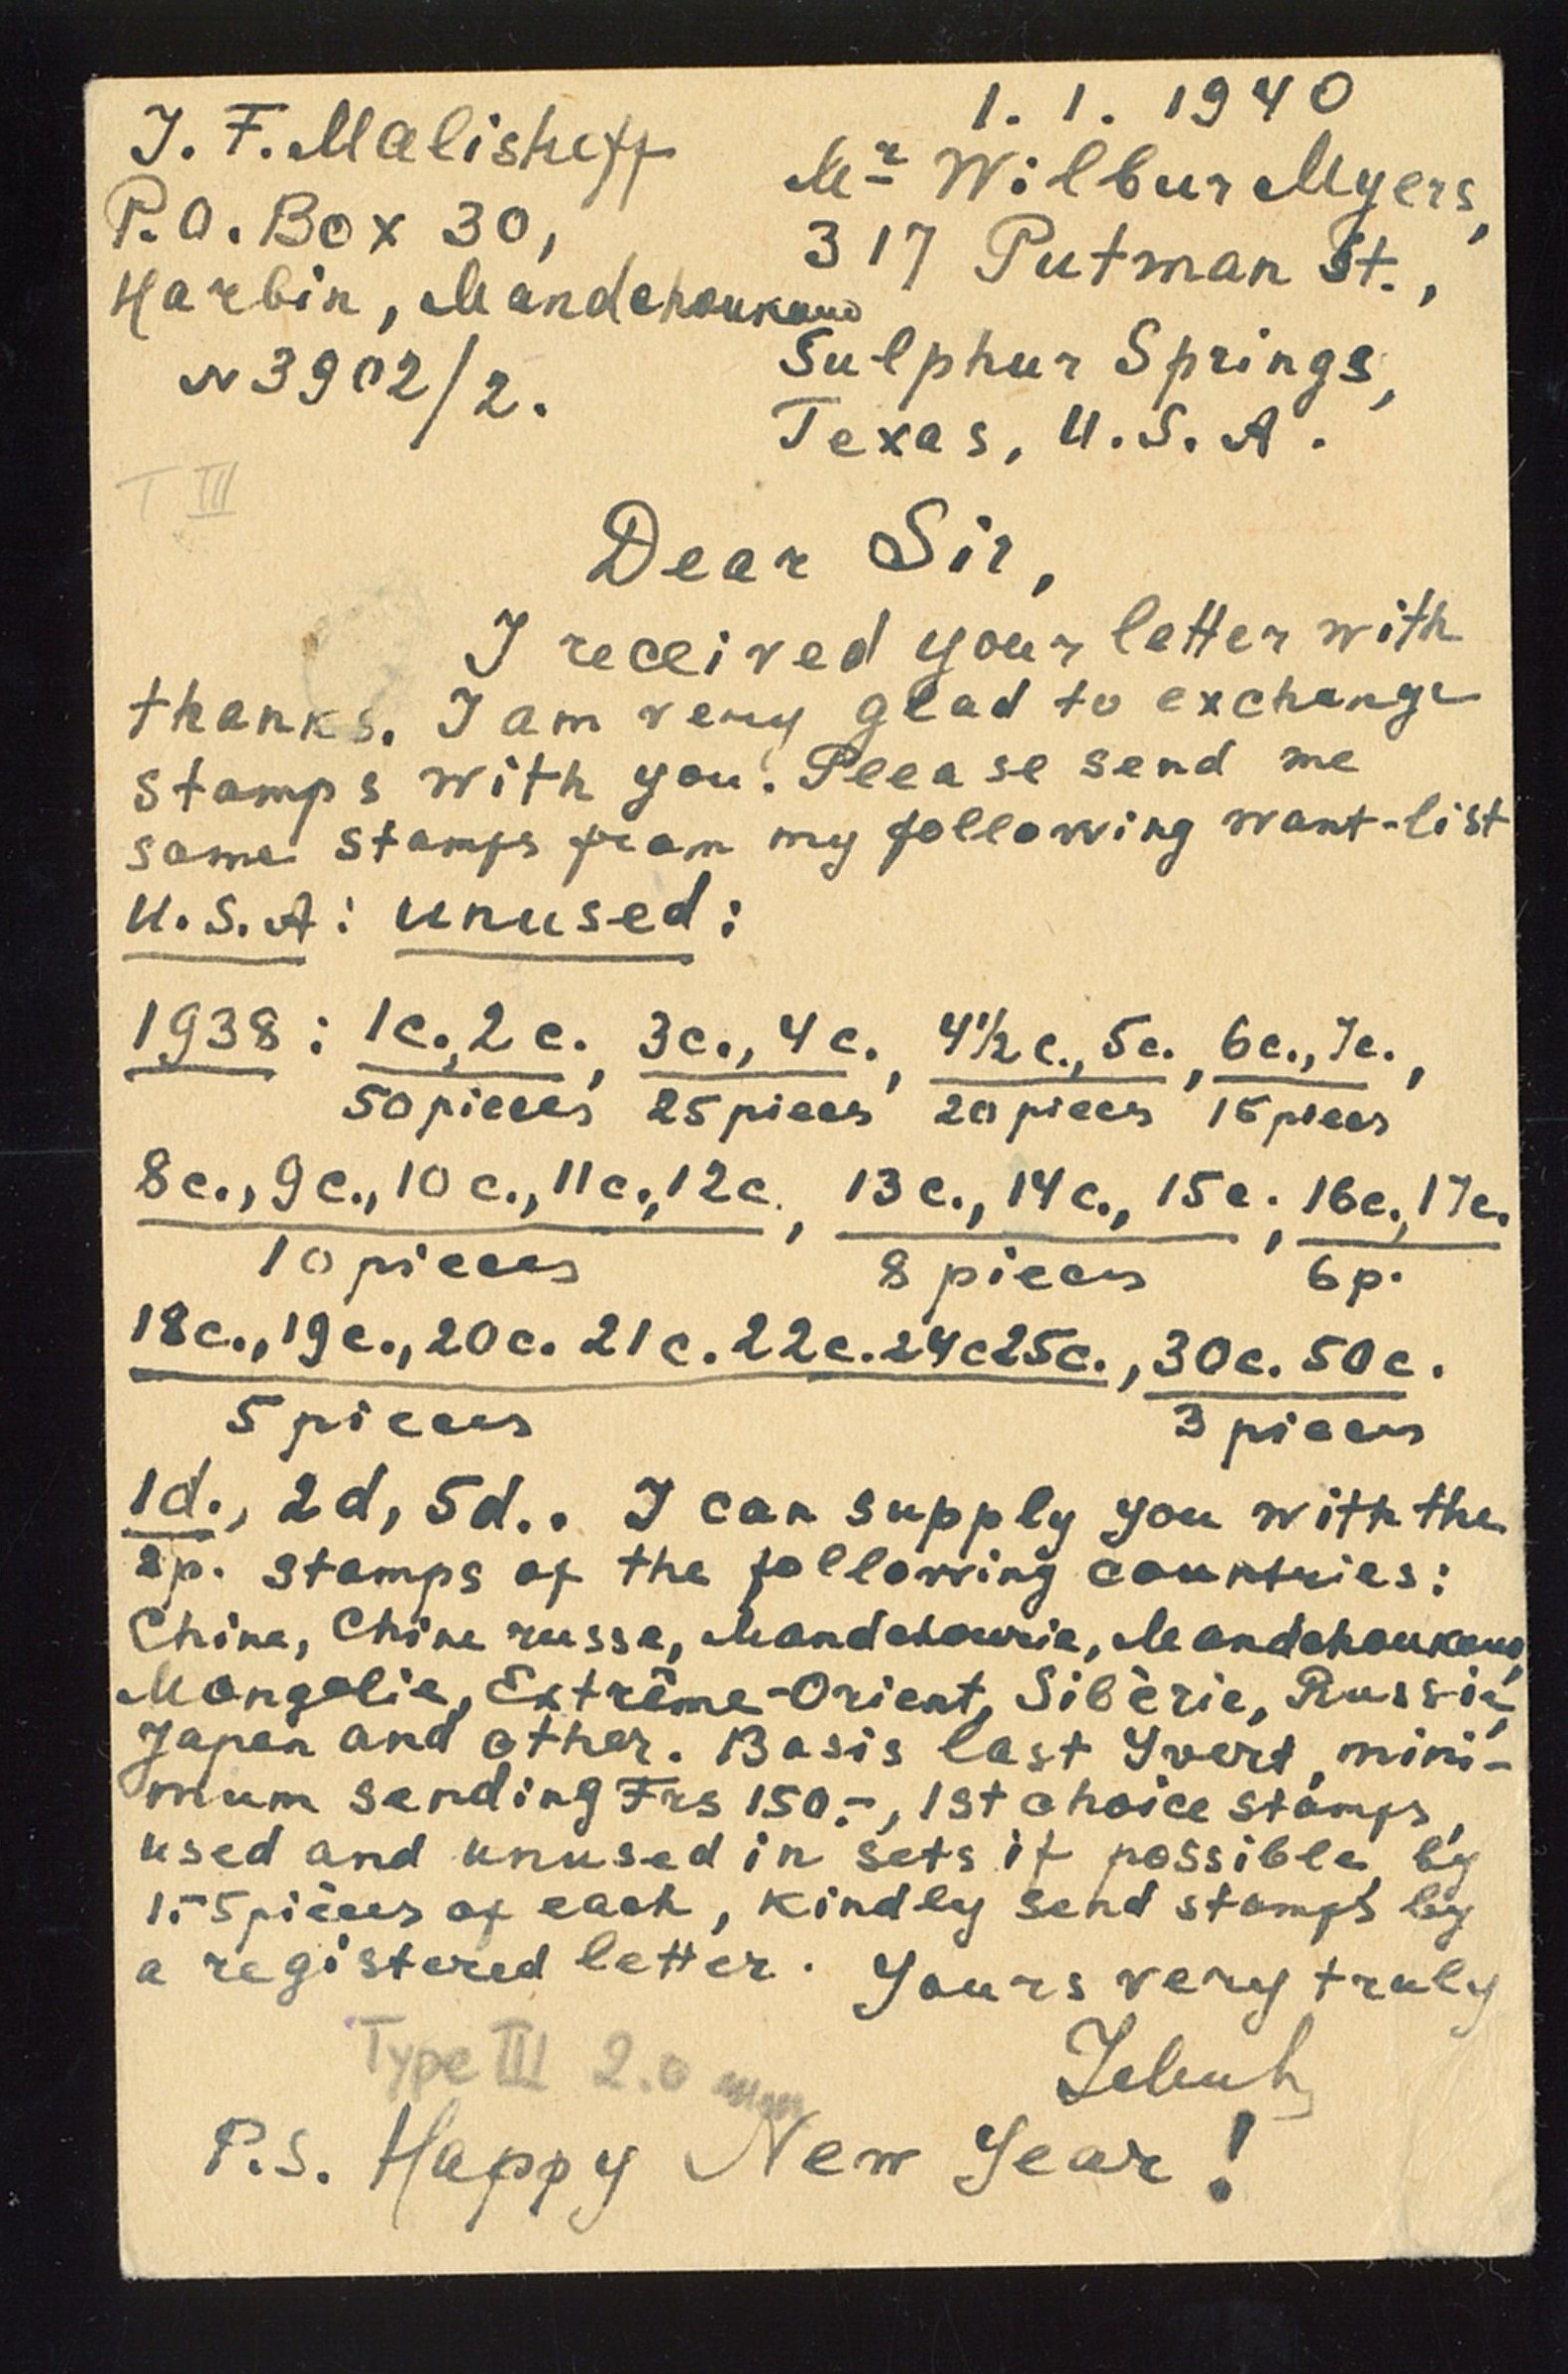 1. 1. 1940
J. F. Malisheff
P.O. Box 30,
Harbin, Mandchoukouo
N 3902/2.
Mr Wilbur Myers,
317 Putman St.,
Sulphur Springs,
Texas, U.S.A.
T III
Dear Sir,
I received your letter with
thanks. I am very glad to exchange
stamps with you. Please send me
some stamps from my following want-list
U.S.A: unused:
1938: 1c., 2c., 3c., 4c., 4½c., 5c., 6c., 7c.,
50 pieces 25 pieces 20 pieces 15 pieces
8c., 9c., 10c., 11c., 12c., 13c., 14c., 15c., 16c., 17c.
10 pieces 8 pieces 6p.
18c., 19c., 20c. 21c. 22c. 24c 25c., 30c. 50c.
5 pieces 3 pieces
1d., 2d, 5d.. I can supply you with the
2p. stamps of the following countries:
Chine, Chine russe, Mandchourie, Mandchoukouo,
Mongolie, Extrême-Orient, Sibèrie, Russie,
Japan and other. Basis last Yvert, mini-
mum sending Frs 150.-, 1st choice stamps,
used and unused in sets if possible, by
1.-5 pièces of each, Kindly send stamps by
a registered letter. Yours very truly
Type III 2.0 mm
P.S. Happy New Year!